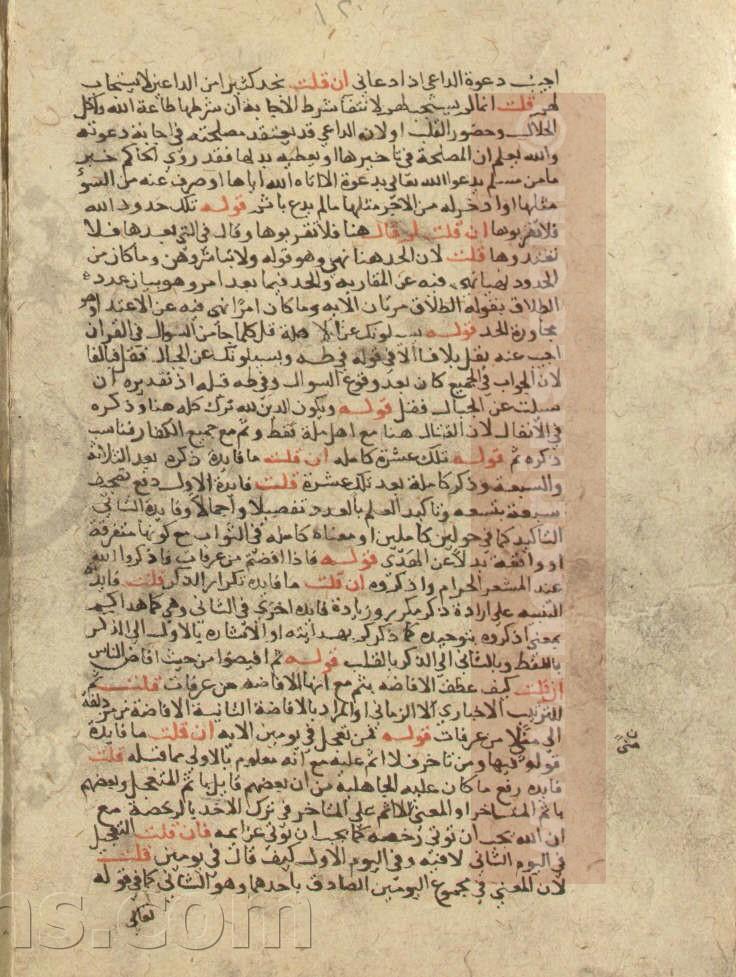 اجيب دعوة الداعي اذا دعاني ان قلت نجد كثيرا من الداعين لا يستجاب
لهم قلت انما لم يستجب لهم لانتفا شرط الاجابة ان شرطها طاعة الله واكل
الحلال وحضور القلب او لان الداعي قد يعتقد مصلحته في اجابة دعوته
والله يعلم ان المصلحة في تاخيرها او يعطيه بدلها فقد روي الحاكم خبر
ما من مسلم يدعوا الله تعالي بدعوة الا اتاه الله اياها او صرف عنه من السوء
مثلها او ادخر له من الاجر مثلها ما لم يدع باثم قوله تلك حدود الله
فلا تقربوها ان قلت لم قال هنا فلا تقربوها وقال في التي بعدها فلا
تعتدوها قلت لان الحد هنا نهي وهو قوله ولا تباشروهن وما كان من
الحدود نهيا نهي فيه عن المقاربه والحد فيما بعد امر وهو بيان عدد
الطلاق بقوله الطلاق مرتان الايه وما كان امرا نهي فيه عن الاعتدا وهو
مجاوزة الحد قوله يسلونك عن الاهلة قل كلما جا من السوال في القران
اجيب عنه بقل بلا فا الا في قوله في طه ويسيلونك عن الجبال فقل فبالفا
لان الجواب في الجميع كان بعد وقوع السوال وفي طه قبله اذ تقديره ان
سيلت عن الجبال فقل قوله ويكون الدين لله ترك كله هنا وذكره
في الانفال لان القتال هنا مع اهل مكة فقط وثم مع جميع الكفار فناسب
ذكره ثم قوله تلك عشرة كامله ان قلت ما فايدة ذكره بعد الثلاثة
والسبعة وذكر كاملة بعد تلك عشرة قلت فايدة الاول دفع تصحيف
سبعة بتسعه وتاكيد العلم بالعدد تفصيلا واجمالا وفايدة الثاني
التاكيد كما في حولين كاملين او معناه كامله في الثواب مع كونها متفرقة
او واقعة بدلا عن الهدي قوله فاذا افضتم من عرفات فاذكروا الله
عند المشعر الحرام واذكروه ان قلت ما فايدة تكرار الذكر قلت فايدة
التنبيه علي ارادة ذكر مكرر وزيادة فايده اخري في الثاني وهي كما هداكم
بمعني اذكروه بتوحيده كما ذكركم بهدايته او الاشاره بالاول الي الذكر
باللفظ وبالثاني الي الذكر بالقلب قوله ثم افيضوا من حيث افاض الناس
ان قلت كيف عطف الافاضه بثم مع انها الافاضه من عرفات قلت ثم
للترتيب الاخباري لا الزماني او المراد بالافاضة الثانية الافاضة من مزدلفة
الي مني لا من عرفات قوله فمن تعجل في يومين الايه ان قلت ما فايدة
قوله فيها ومن تاخر فلا اثم عليه مع انه معلوم بالاولي مما قبله قلت
فايده رفع ما كان عليه الجاهلية من ان بعضهم قايل باثم المتعجل وبعضهم
باثم المتاخر او المعني لا اثم علي المتاخر في ترك الاخذ بالرخصة مع
ان الله يحب ان توتي رخصه كما يحب ان توتي عزايمه فان قلت التعجل
في اليوم الثاني لا فيه وفي اليوم الاول كيف قال في يومين قلت
لان المعني في مجموع اليومين الصادق باحدهما وهو الثاني كما في قوله
تعالي
ns.com